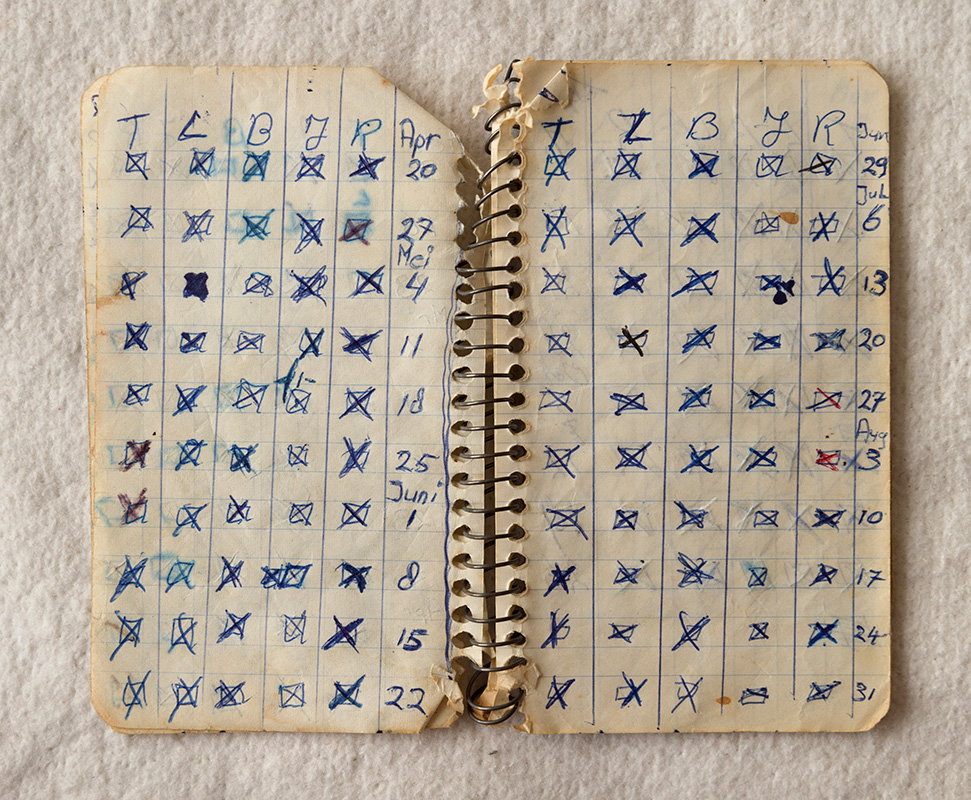 T L B J R Apr
20
27
Mei
4
11
1-
18
25
Juni
1
8
15
22
T L B J R Jun
29
Jul
6
13
20
27
Aug
3
10
17
24
31